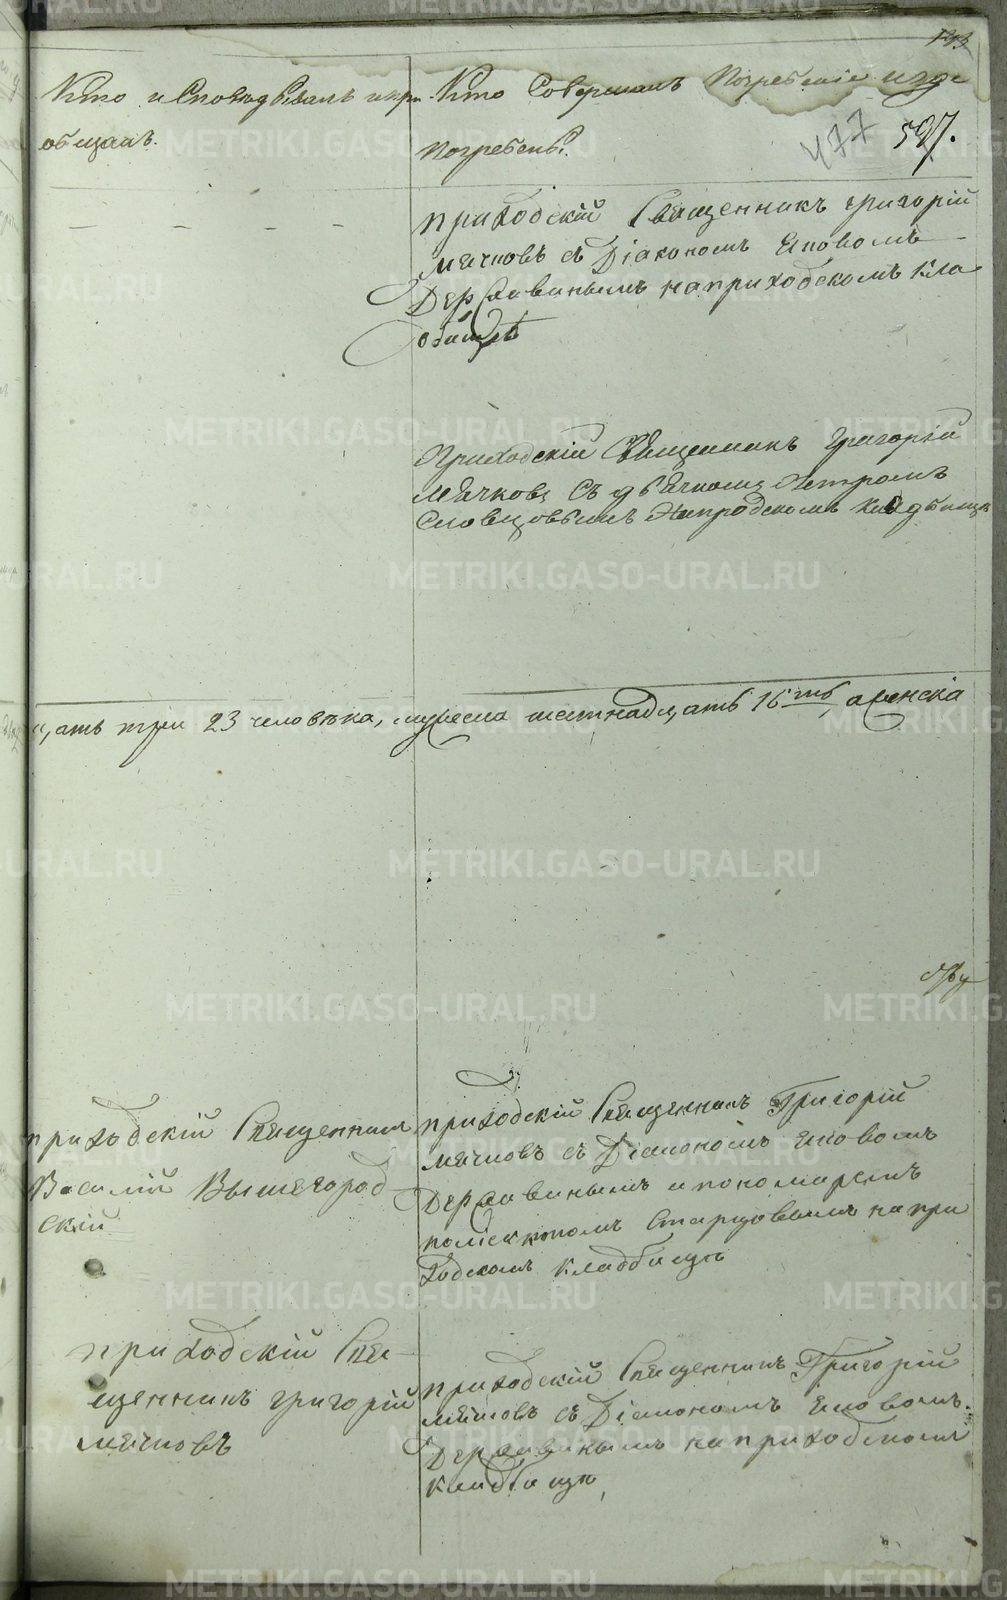 193
Кто исповѣдывалъ и при-
общалъ.
Кто Совершалъ Погребеніе и гдѣ
погребены?
477 597.
приходскій Священникъ григорій
Мячковъ съ Діакономъ Іововомъ
Державинымъ на приходскомъ кла
дбищѣ
Приходскій Священникъ Григорій
Мячковъ Съ дьячкомъ Петромъ
Словцовымъ
цать три 23 человѣка, мужеска шестнадцать 16ть, а женска
приходскій Священникъ
Василій Вышегород
скій
приходскій Священникъ Григорій
Мячковъ съ Діакономъ Іововомъ
Державинымъ и пономаремъ
Старцовымъ на при
ходскомъ кладбищѣ
приходскій Свя-
щенникъ григорій
Мячковъ
приходскій Священникъ Григорій
Мячковъ съ Діакономъ Іововомъ
Державинымъ на приходскомъ
кладбищѣ
METRIKI.GASO-URAL.RU